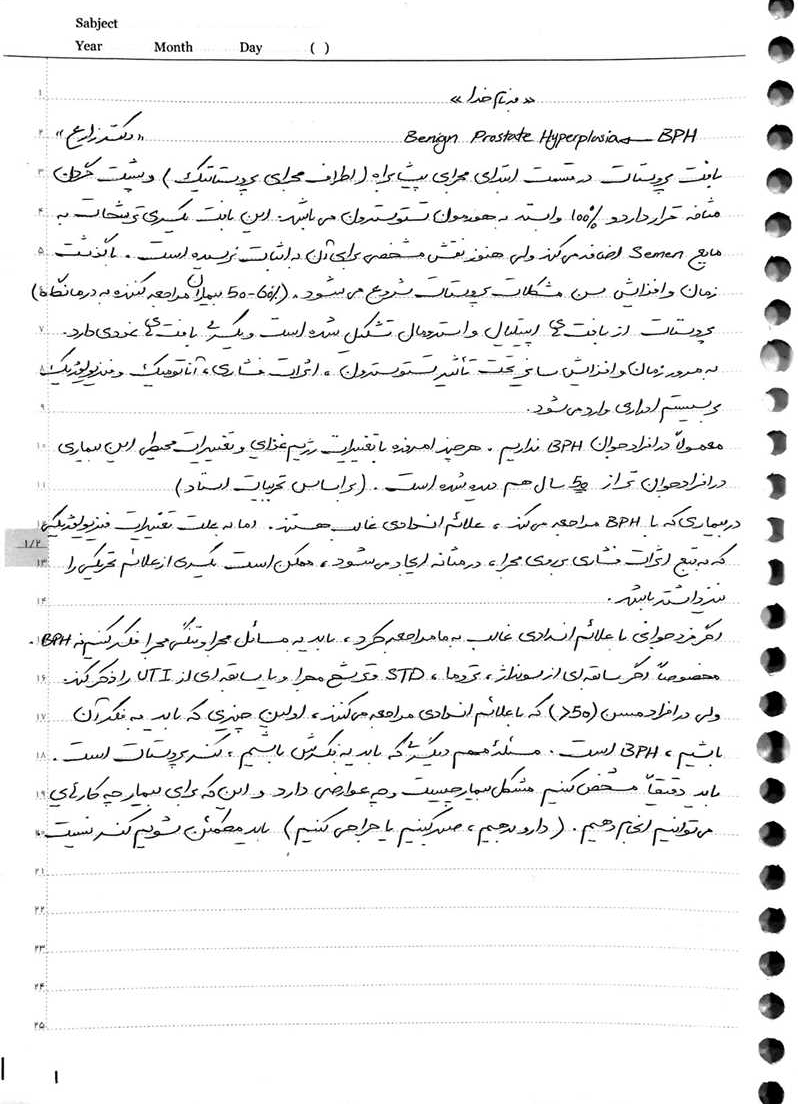 Sabject
Year Month Day ( )
«به نام خدا»
Benign Prostate Hyperplasia ← BPH «دکتر زارع»
بافت پروستات در قسمت ابتدای مجرای پیشابراه (اطراف مجرای پروستاتیک) و پشت گردن
مثانه قرار دارد و 100% وابسته به هورمون تستوسترون می باشد. این بافت یکسری ترشحات به
مایع Semen اضافه می کند ولی هنوز نقش مشخصی برای آن به اثبات نرسیده است. با گذشت
زمان و افزایش سن مشکلات پروستات شروع می شود. (50-60% بیماران مراجعه کننده به درمانگاه)
پروستات از بافت های اپیتلیال و استرومال تشکیل شده است و یکسری بافت های غددی دارد.
به مرور زمان و افزایش سایز تحت تأثیر تستوسترون، اثرات فشاری، آناتومیک و فیزیولوژیک
بر سیستم ادراری وارد می شود.
معمولاً در افراد جوان BPH نداریم. هرچند امروزه با تغییرات رژیم غذایی و تغییرات محیطی این بیماری
در افراد جوان تر از 50 سال هم دیده شده است. (بر اساس تجربیات استاد)
در بیماری که با BPH مراجعه می کند، علائم انسدادی غالب هستند. اما به علت تغییرات فیزیولوژیکی
که به تبع اثرات فشاری بر روی مجرا، در مثانه ایجاد می شود، ممکن است یکسری از علائم تحریکی را
نیز داشته باشد.
اگر فرد جوانی با علائم انسدادی غالب به ما مراجعه کرد، باید به مسائل مجرا و تنگی مجرا فکر کنیم نه BPH.
مخصوصاً اگر سابقه ای از سونداژ، تروما، STD و ترشح مجرا و یا سابقه ای از UTI را ذکر کند.
ولی در افراد مسن (>50) که با علائم انسدادی مراجعه می کنند، اولین چیزی که باید به فکر آن
باشیم، BPH است. مسئله مهم دیگری که باید به فکرش باشیم، کنسر پروستات است.
باید دقیقاً مشخص کنیم مشکل بیمار چیست و چه عوارضی دارد و این که برای بیمار چه کارهای
می توانیم انجام دهیم. (دارو بدهیم، صبر کنیم یا جراحی کنیم) باید مطمئن بشویم کنسر نیست
1/2
۱
۲
۳
۴
۵
۷
۸
۹
۱۰
۱۱
۱۳
۱۴
۱۶
۱۷
۱۸
۱۹
۲۰
۲۱
۲۲
۲۳
۲۴
۲۵
1